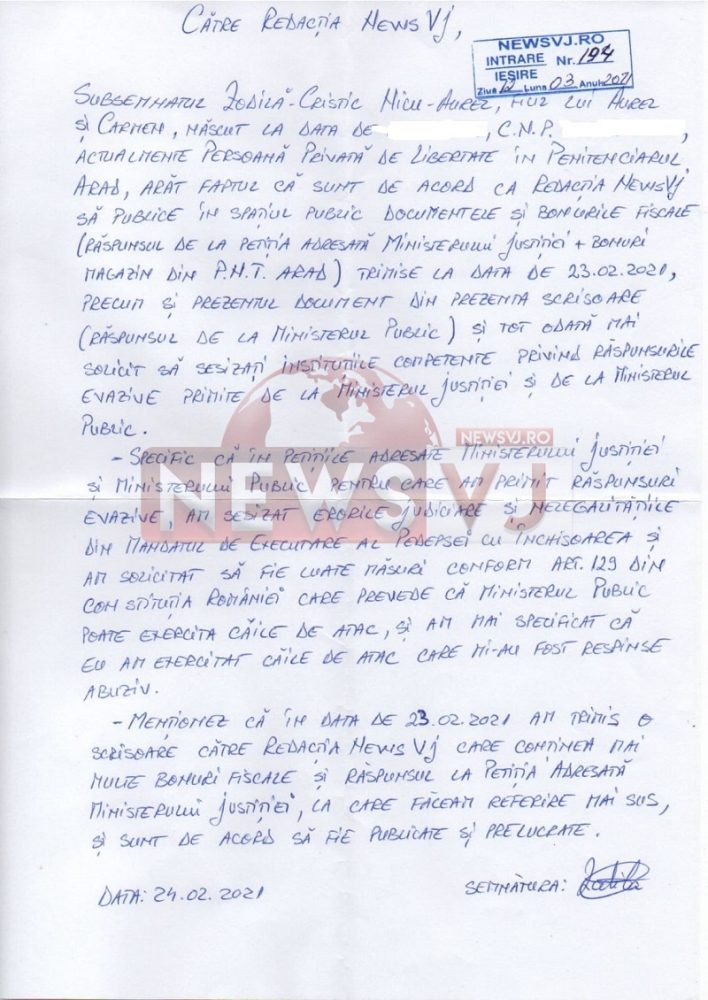 CĂTRE REDACȚIA NEWS VJ,
NEWSVJ.RO
INTRARE Nr. 194
IEȘIRE
Ziua 12 Luna 03 Anul 2021
SUBSEMNATUL ZODILĂ-CRISTIC NICU-AUREL, FIUL LUI AUREL
ȘI CARMEN, NĂSCUT LA DATA DE , C.N.P. ,
ACTUALMENTE PERSOANĂ PRIVATĂ DE LIBERTATE ÎN PENITENCIARUL
ARAD, ARĂT FAPTUL CĂ SUNT DE ACORD CA REDACȚIA NEWSVJ
SĂ PUBLICE ÎN SPAȚIUL PUBLIC DOCUMENTELE ȘI BONURILE FISCALE
(RĂSPUNSUL DE LA PETIȚIA ADRESATĂ MINISTERULUI JUSTIȚIEI + BONURI
MAGAZIN DIN P.N.T. ARAD) TRIMISE LA DATA DE 23.02.2021,
PRECUM ȘI PREZENTUL DOCUMENT DIN PREZENTA SCRISOARE
(RĂSPUNSUL DE LA MINISTERUL PUBLIC) ȘI TOT ODATĂ MAI
SOLICIT SĂ SESIZAȚI INSTITUȚIILE COMPETENTE PRIVIND RĂSPUNSURILE
EVAZIVE PRIMITE DE LA MINISTERUL JUSTIȚIEI ȘI DE LA MINISTERUL
PUBLIC.
NEWSVJ.RO
NEWS VJ
- SPECIFIC CĂ ÎN PETIȚIILE ADRESATE MINISTERULUI JUSTIȚIEI
ȘI MINISTERULUI PUBLIC, PENTRU CARE AM PRIMIT RĂSPUNSURI
EVAZIVE, AM SESIZAT ERORILE JUDICIARE ȘI NELEGALITĂȚILE
DIN MANDATUL DE EXECUTARE AL PEDEPSEI CU ÎNCHISOAREA ȘI
AM SOLICITAT SĂ FIE LUATE MĂSURI CONFORM ART. 129 DIN
CONSTITUȚIA ROMÂNIEI CARE PREVEDE CĂ MINISTERUL PUBLIC
POATE EXERCITA CĂILE DE ATAC, ȘI AM MAI SPECIFICAT CĂ
EU AM EXERCITAT CĂILE DE ATAC CARE MI-AU FOST RESPINSE
ABUZIV.
- MENȚIONEZ CĂ ÎN DATA DE 23.02.2021 AM TRIMIS O
SCRISOARE CĂTRE REDACȚIA NEWS VJ CARE CONȚINEA MAI
MULTE BONURI FISCALE ȘI RĂSPUNSUL LA PETIȚIA ADRESATĂ
MINISTERULUI JUSTIȚIEI, LA CARE FĂCEAM REFERIRE MAI SUS,
ȘI SUNT DE ACORD SĂ FIE PUBLICATE ȘI PRELUCRATE.
DATA: 24.02.2021 SEMNĂTURA: